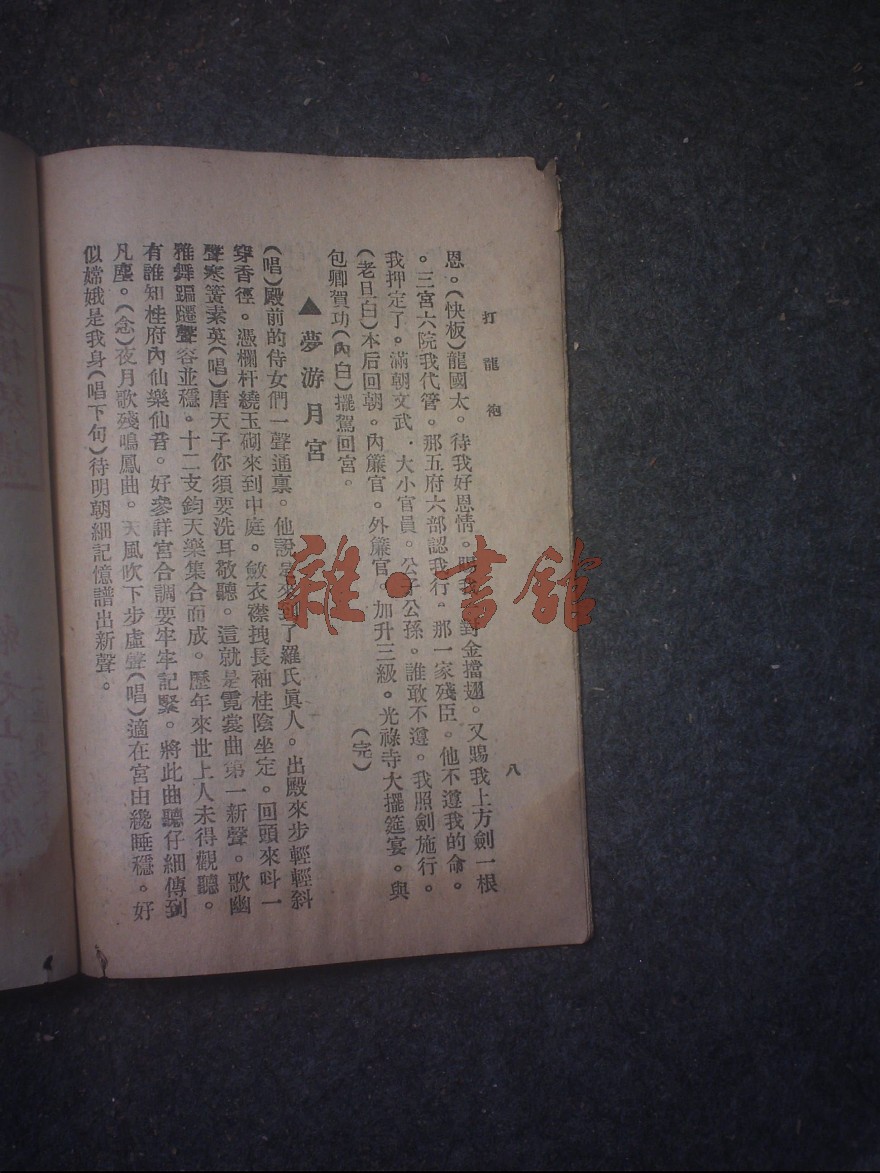 打龍袍
八
恩。(快板)龍國太。待我好恩情。賜我一對金擋翅。又賜我上方劍一根
。三宮六院我代管。那五府六部認我行。那一家殘臣。他不遵我的命。
我押定了。滿朝文武．大小官員。公子公孫。誰敢不遵。我照劍施行。
(老旦白)本后回朝。內簾官。外簾官。加升三級。光祿寺大擺筵宴。與
包卿賀功(內白)擺駕回宮。
(完)
▲夢游月宮
(唱)殿前的侍女們一聲通稟。他說是來到了羅氏眞人。出殿來步輕輕斜
穿香徑。憑欄杆繞玉砌來到中庭。斂衣襟拽長袖桂陰坐定。回頭來呌一
聲寒簧素英(唱)唐天子你須要洗耳敬聽。這就是霓裳曲第一新聲。歌幽
雅舞蹁躚聲容並穩。十二支鈞天樂集合而成。歷年來世上人未得觀聽。
有誰知桂府內仙樂仙音。好參詳宮合調要牢牢記緊。將此曲聽仔細傳到
凡塵。(念)夜月歌殘鳴鳳曲。天風吹下步虛聲(唱)適在宮由纔睡穩。好
似嫦娥是我身(唱下句)待明朝細記憶譜出新聲。
雜·書館